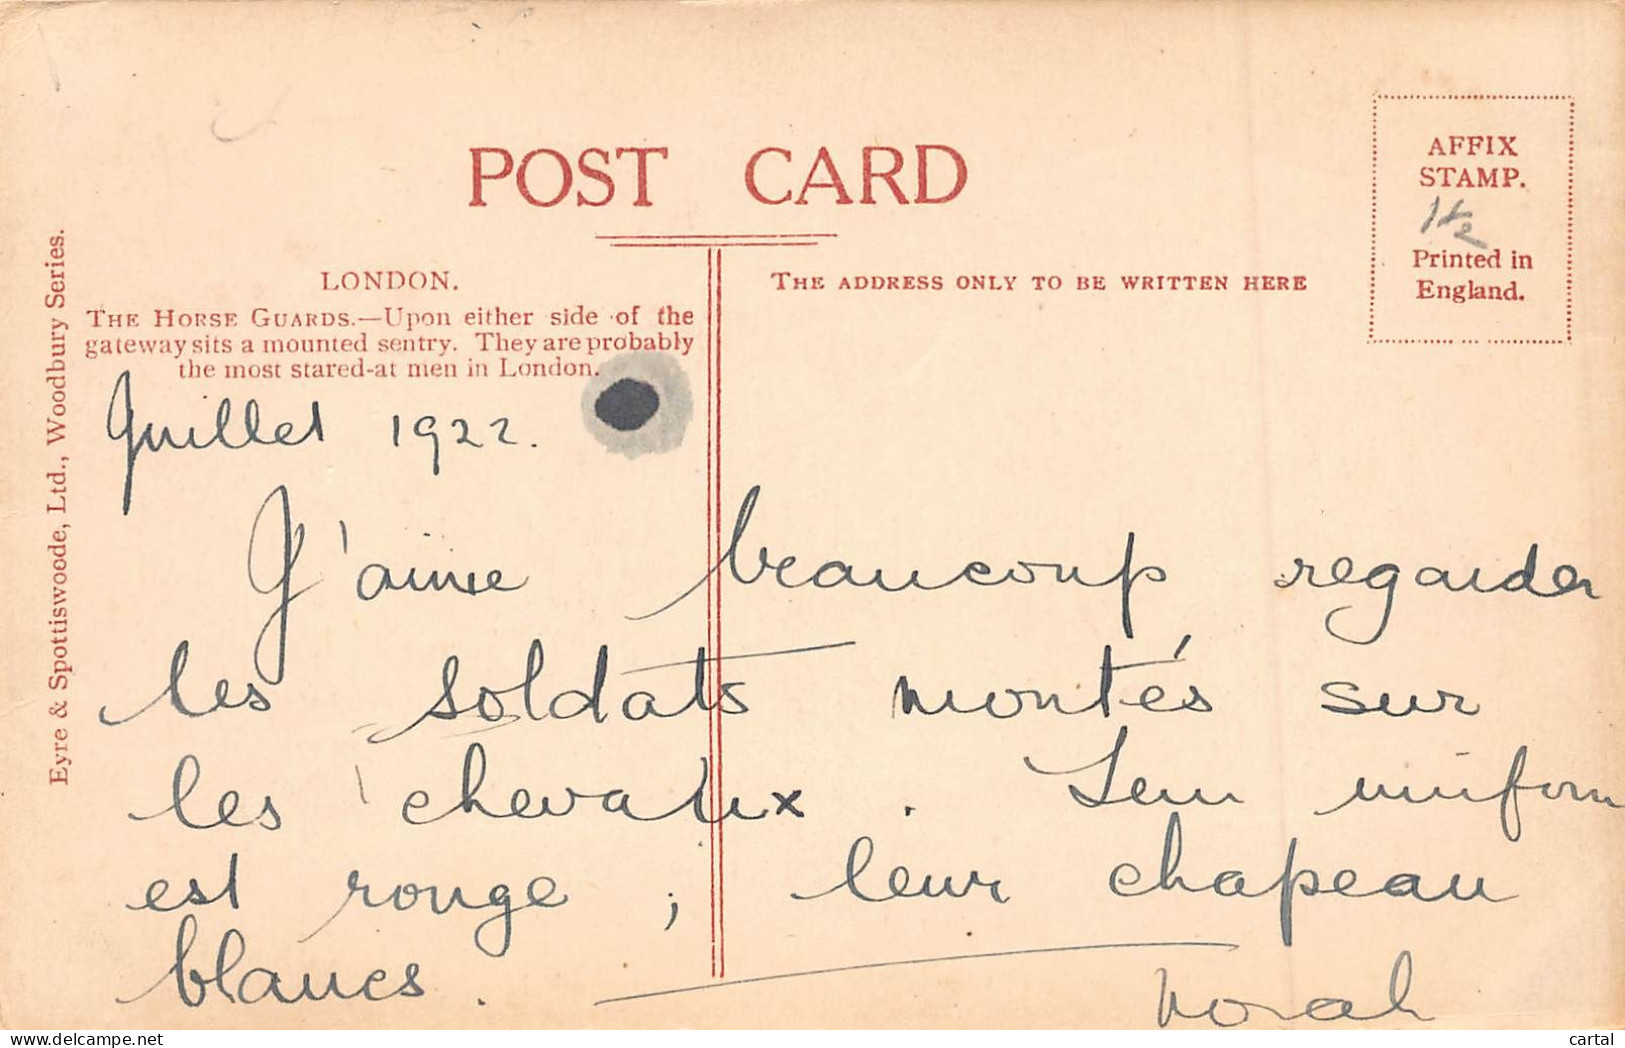 POST CARD
AFFIX
STAMP.
1½
Printed in
England.
LONDON.
THE HORSE GUARDS.—Upon either side of the
gateway sits a mounted sentry. They are probably
the most stared-at men in London.
THE ADDRESS ONLY TO BE WRITTEN HERE
Eyre & Spottiswoode, Ltd., Woodbury Series.
Juillet 1922.
J'aime beaucoup regarder
les soldats montés sur
les chevaux. Leur uniform
est rouge ; leur chapeau
blancs.
Norah
cartal